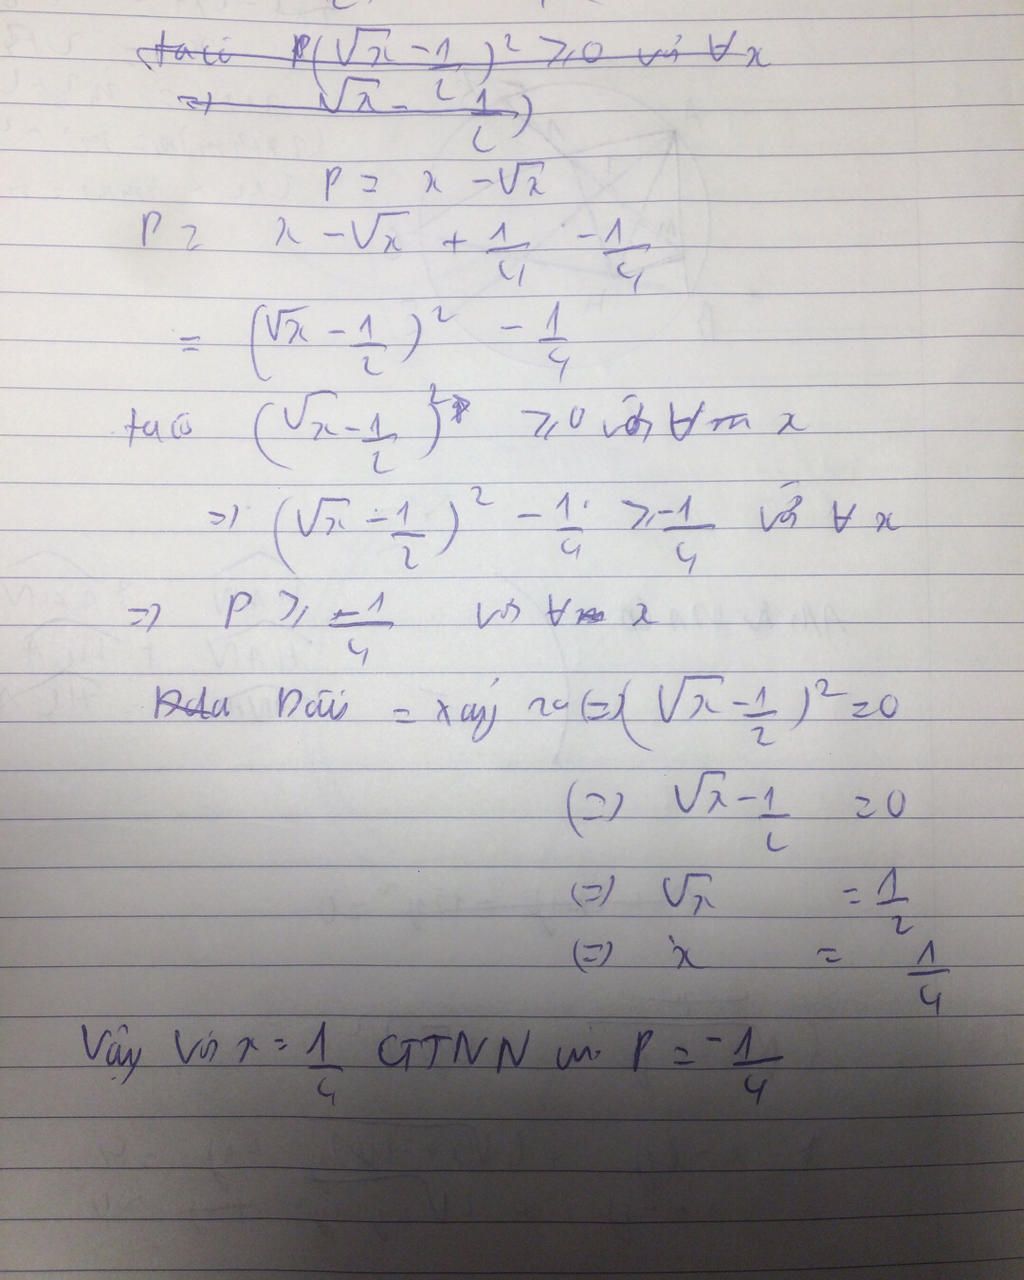 ta có P(√x - 1/2)² ≥ 0 với ∀ x
=> √x - 1/2)
P = x - √x
P = x - √x + 1/4 - 1/4
= (√x - 1/2)² - 1/4
ta có (√x - 1/2)² ≥ 0 với ∀ x
=> (√x - 1/2)² - 1/4 ≥ -1/4 với ∀ x
=> P ≥ -1/4 với ∀ x
Dấu = xảy ra (=) (√x - 1/2)² = 0
(=) √x - 1/2 = 0
(=) √x = 1/2
(=) x = 1/4
Vậy với x = 1/4 GTNN của P = -1/4